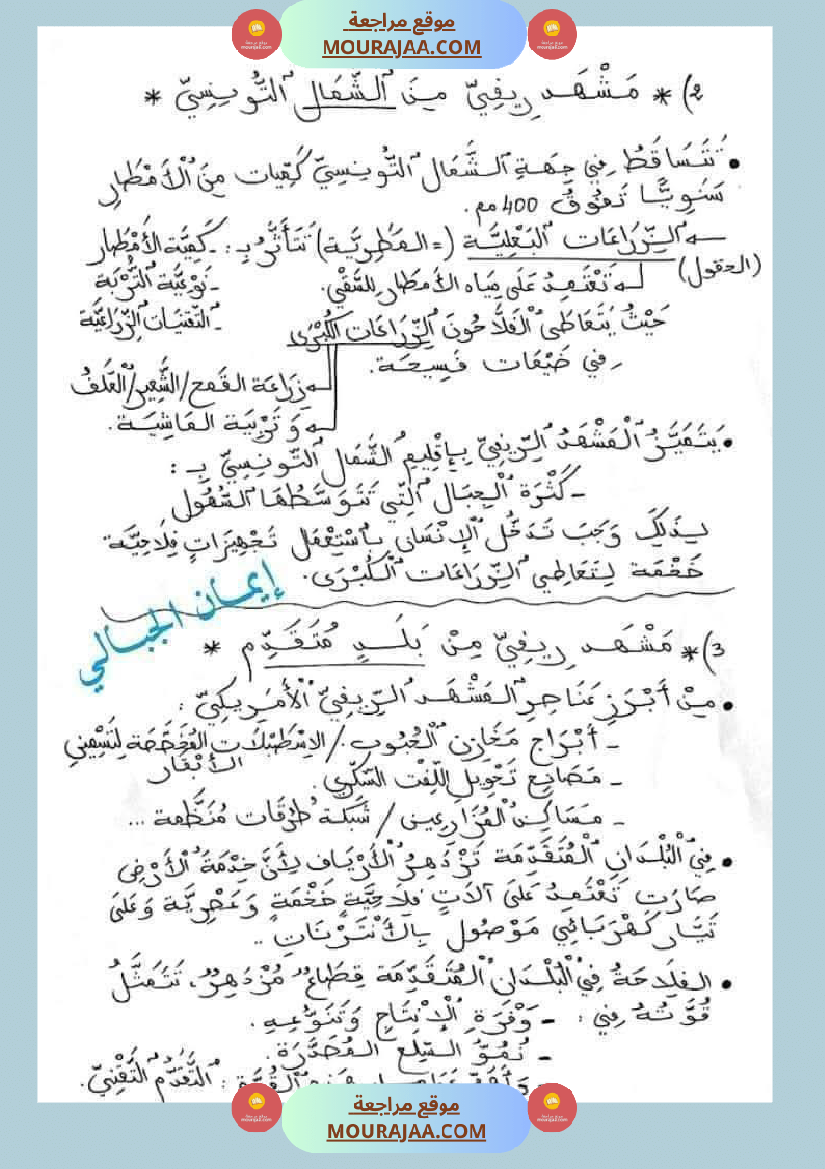 موقع مراجعة
MOURAJAA.COM
2) * مَشْهَد رِيفِيّ مِنَ الشَّمَالِ التُّونِسِيّ *
• تَتَسَاقَطُ فِي جِهَةِ الشَّمَال التُّونِسِيّ كَمِّيات مِنَ الْأَمْطَارِ
سَنَوِيًّا تَفُوقُ 400 مم.
الزِّرَاعَات البَعْلِيَّة (= المَطَرِيَّة) تَتَأَثَّرُ بِـ : - كَمِّيَّة الأَمْطَار
(الحقول)
تَعْتَمِدُ عَلَى مِيَاه الأَمطَار لِلسَّقْيِ. - نَوْعِيَّة التُّرْبَة
- التِّقْنِيَات الزِّرَاعِيَّة
حَيْثُ يَتَعَاطَى الفَلَّاحُونَ الزِّرَاعَات الكُبْرَى
فِي ضَيْعَات فَسِيحَة.
زِرَاعَة القَمح/الشَّعِير/العَلَفْ
وَ تَرْبِيَة المَاشِيَة.
• يَتَمَيَّزُ الْمَشْهَدُ الرِّيفِيّ بِإِقْلِيمِ الشَّمَال التُّونِسِيّ بِـ :
- كَثْرَة الْجِبَال الَّتِي تَتَوَسَّطُهَا السُّهُول
لِذَلِكَ وَجَبَ تَدَخُّل الْإِنْسَان بِاسْتِعْمَال تَجْهِيزَاتٍ فِلَاحِيَّة
ضَخْمَة لِتَعَاطِي الزِّرَاعَات الْكُبْرَى.
إيمان الجبالي
3) * مَشْهَد رِيفِيّ مِنْ بَلَدٍ مُتَقَدِّم *
• مِنْ أَبْرَزِ عَنَاصِرِ الْمَشْهَد الرِّيفِيّ الْأَمْرِيكِيّ :
- أَبْرَاج مَخَازِن الْحُبُوب. / الإسْطَبْلَات المُخَصَّصَة لِتَسْمِينِ الأَبْقَار
- مَصَانِع تَحْوِيل اللِّفْت السّكّري.
- مَسَاكِن الْمُزَارِعِين / شَبَكَة طُرُقَات مُنَظَّمة ...
• فِي الْبُلْدَانِ الْمُتَقَدِّمَة تَزْدَهِرُ الْأَرْيَاف لِأَنَّ خِدْمَةَ الْأَرْضِ
صَارَت تَعْتَمِدُ عَلَى آلَاتٍ فِلَاحِيَّةٍ ضَخْمَةٍ وَعَصْرِيَّة وَعَلَى
تَيَّار كَهْرَبَائِي مَوْصُول بِالْأَنْتَرْنَات ..
• الفِلَاحَةُ فِي الْبُلْدَان الْمُتَقَدِّمَة قِطَاعٌ مُزْدَهِرٌ، تَتَمَثَّلُ
قُوَّتُهُ فِي : - وَفْرَةِ الْإِنْتَاجِ وَتَنَوُّعِهِ.
- نُمُوّ السِّلَع المُصَدَّرَة.
التَّقَدُّم التِّقْنِيّ.
موقع مراجعة
MOURAJAA.COM